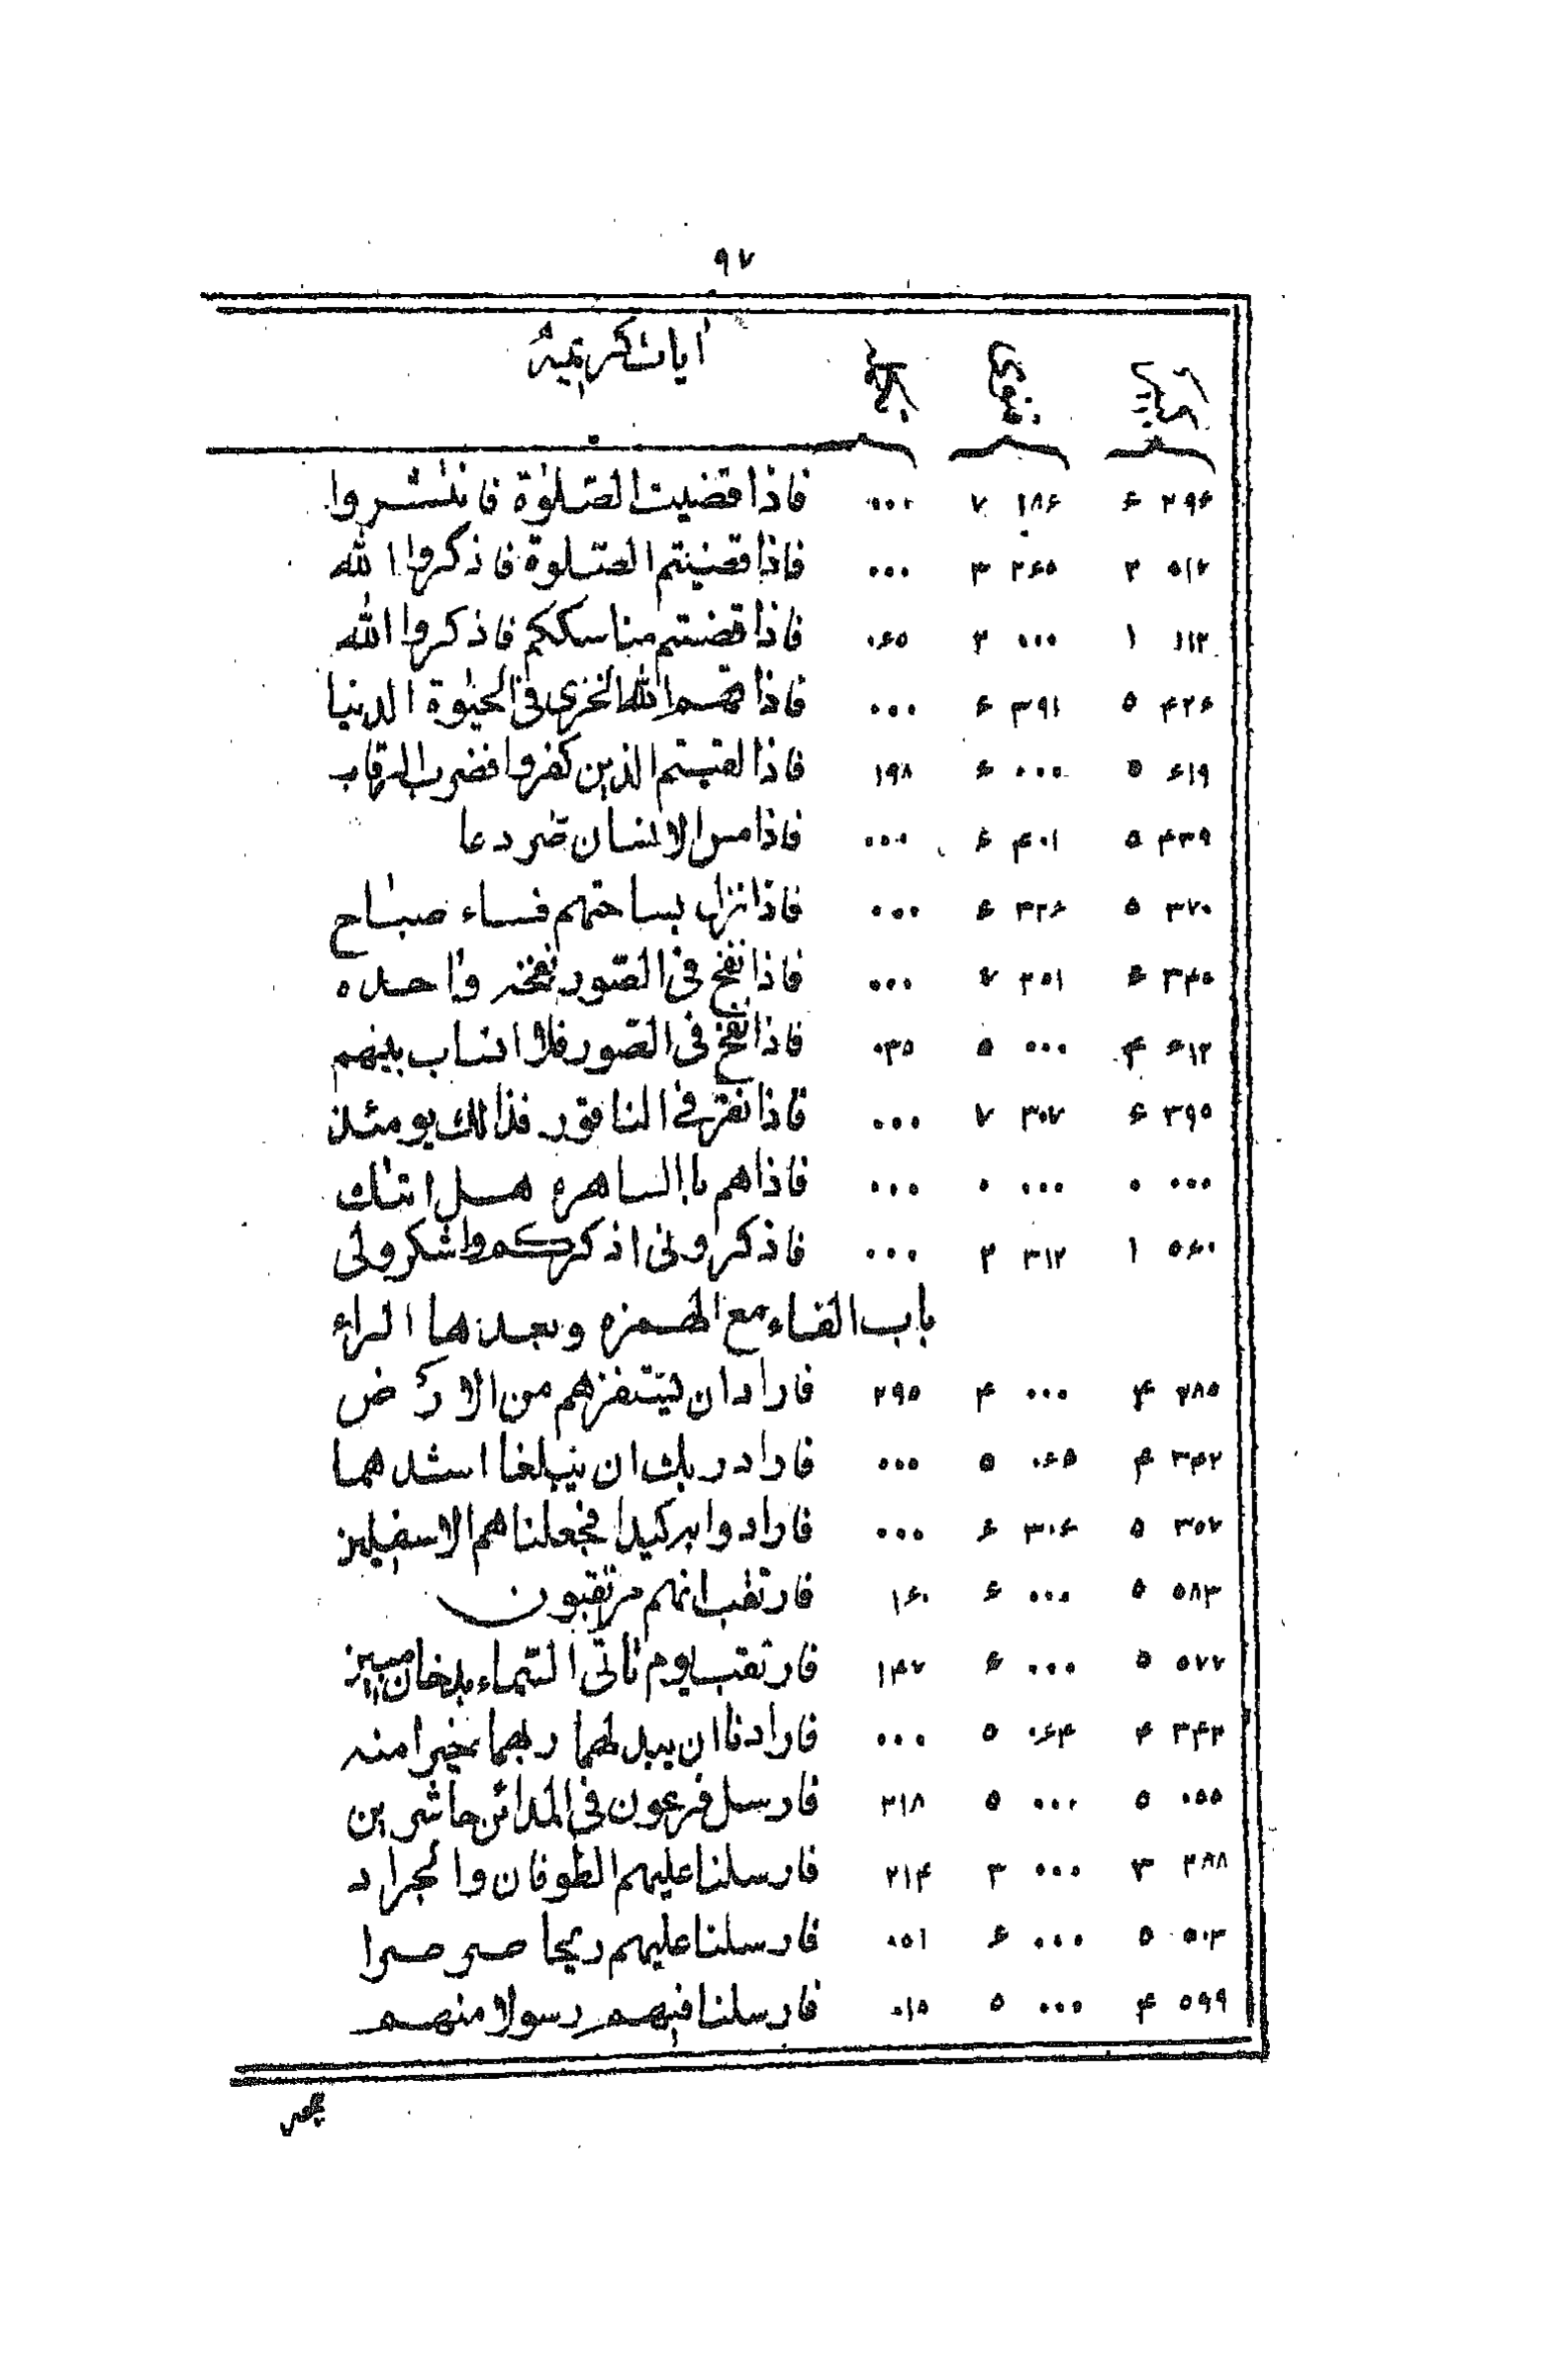 ۹۷
ایات کریمه
۲۹۶ ۶ ۱۸۶ ۷ ۰۰۰ فاذا قضیت الصّلوٰة فانتشروا
۵۱۷ ۲ ۲۶۵ ۳ ۰۰۰ فاذا قضیتم الصّلوة فاذکروا الله
۱۱۲ ۱ ۰۰۰ ۲ ۰۶۵ فاذا قضیتم مناسککم فاذکروا الله
۴۲۶ ۵ ۳۹۱ ۶ ۰۰۰ فاذاقهم الله الخزی فی الحیٰوة الدنیا
۶۱۹ ۵ ۰۰۰ ۶ ۱۹۸ فاذا لقیتم الذین کفروا فضرب الرقاب
۴۳۹ ۵ ۴۰۱ ۶ ۰۰۰ فاذا مس الانسان ضر دعا
۳۷۰ ۵ ۳۳۶ ۶ ۰۰۰ فاذا نزل بساحتهم فساء صباح
۳۴۵ ۶ ۲۵۱ ۷ ۰۰۰ فاذا نفخ فی الصّور نفخه واحده
۶۱۲ ۴ ۰۰۰ ۵ ۰۳۵ فاذا نفخ فی الصّور فلا انساب بینهم
۳۹۵ ۶ ۳۰۷ ۷ ۰۰۰ فاذا نقر فی الناقور فذالک یومئذ
۰۰۰ ۰ ۰۰۰ ۰ ۰۰۰ فاذا هم باالساهره هل اتٰک
۵۶۰ ۱ ۳۱۲ ۲ ۰۰۰ فاذکرونی اذکرکم واشکرولی
باب الفاء مع الهمزه وبعدها الراء
۲۸۵ ۴ ۰۰۰ ۴ ۲۹۵ فاراد ان یستفزهم من الارض
۳۴۲ ۴ ۰۶۵ ۵ ۰۰۰ فاراد ربک ان یبلغا اشدهما
۳۵۷ ۵ ۳۰۶ ۶ ۰۰۰ فارادوا به کیدا فجعلناهم الاسفلین
۵۸۳ ۵ ۰۰۰ ۶ ۱۶۰ فارتقب انهم مرتقبون
۵۷۷ ۵ ۰۰۰ ۶ ۱۴۷ فارتقب یوم تاتی السّماء بدخان مبین
۳۴۲ ۴ ۰۶۴ ۵ ۰۰۰ فاردنا ان یبدلهما ربهما خیرا منه
۰۵۵ ۵ ۰۰۰ ۵ ۲۱۸ فارسل فرعون فی المدائن حاشرین
۲۸۸ ۳ ۰۰۰ ۳ ۲۱۴ فارسلنا علیهم الطوفان والجراد
۵۰۳ ۵ ۰۰۰ ۶ ۰۵۱ فارسلنا علیهم ریحا صرصرا
۵۹۹ ۴ ۰۰۰ ۵ ۰۱۵ فارسلنا فیهم رسولا منهم